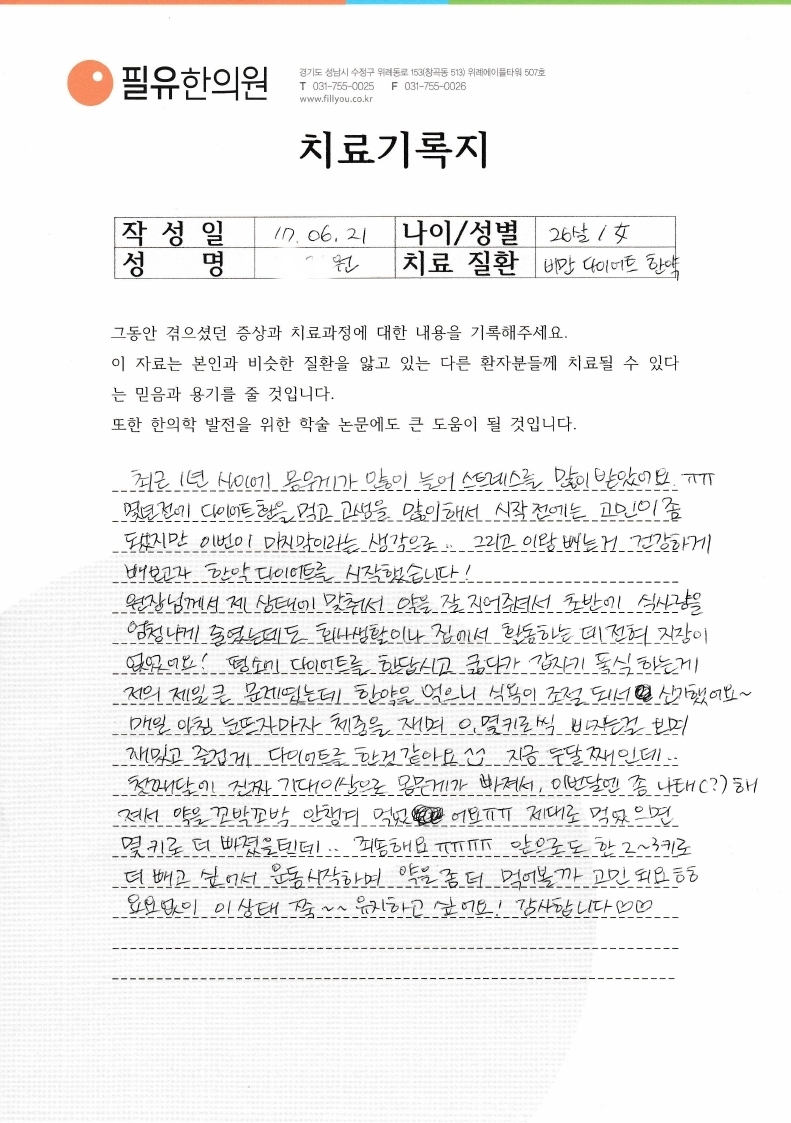 필유한의원
경기도 성남시 수정구 위례동로 153(창곡동 513) 위례에이플타워 507호
T 031-755-0025 F 031-755-0026
www.fillyou.co.kr
치료기록지
작 성 일 17. 06. 21 나이/성별 26살 / 女
성 명 원 치료 질환 비만 다이어트 한약
그동안 겪으셨던 증상과 치료과정에 대한 내용을 기록해주세요.
이 자료는 본인과 비슷한 질환을 앓고 있는 다른 환자분들께 치료될 수 있다
는 믿음과 용기를 줄 것입니다.
또한 한의학 발전을 위한 학술 논문에도 큰 도움이 될 것입니다.
최근 1년 사이에 몸무게가 많이 늘어 스트레스를 많이 받았어요. ㅠㅠ
몇년전에 다이어트환을 먹고 고생을 많이해서 시작전에는 고민이 좀
됐지만 이번이 마지막이라는 생각으로.. 그리고 이왕 빼는거 건강하게
빼보고자 한약 다이어트를 시작했습니다!
원장님께서 제 상태에 맞춰서 약을 잘 지어주셔서 초반에 식사량을
엄청나게 줄였는데도 회사생활이나 집에서 활동하는 데 전혀 지장이
없었어요! 평소에 다이어트를 한답시고 굶다가 갑자기 폭식 하는게
저의 제일 큰 문제였는데 한약을 먹으니 식욕이 조절 되서 신기했어요~
매일 아침 눈뜨자마자 체중을 재며 0.몇키로씩 빠지는걸 보며
재밌고 즐겁게 다이어트를 한것 같아요^^ 지금 두달째인데..
첫째달에 진짜 기대이상으로 몸무게가 빠져서, 이번달엔 좀 나태(?)해
져서 약을 꼬박꼬박 안챙겨 먹었어요ㅠㅠ 제대로 먹었으면
몇키로 더 빠졌을텐데.. 죄송해요ㅠㅠㅠㅠ 앞으로도 한 2~3키로
더 빼고 싶어서 운동시작하며 약을 좀 더 먹어볼까 고민 되요ㅎㅎ
요요없이 이상태 쭉~~ 유지하고 싶어요! 감사합니다♡♡